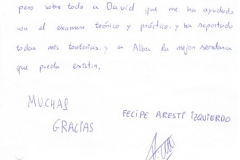 pero sobre todo a David que me ha ayudado
con el examen teórico y práctico, y ha soportado
todas mis tonterias, y a Alba la mejor secretaria
que puede existir.
MUCHAS
GRACIAS
FELIPE ARESTI IZQUIERDO